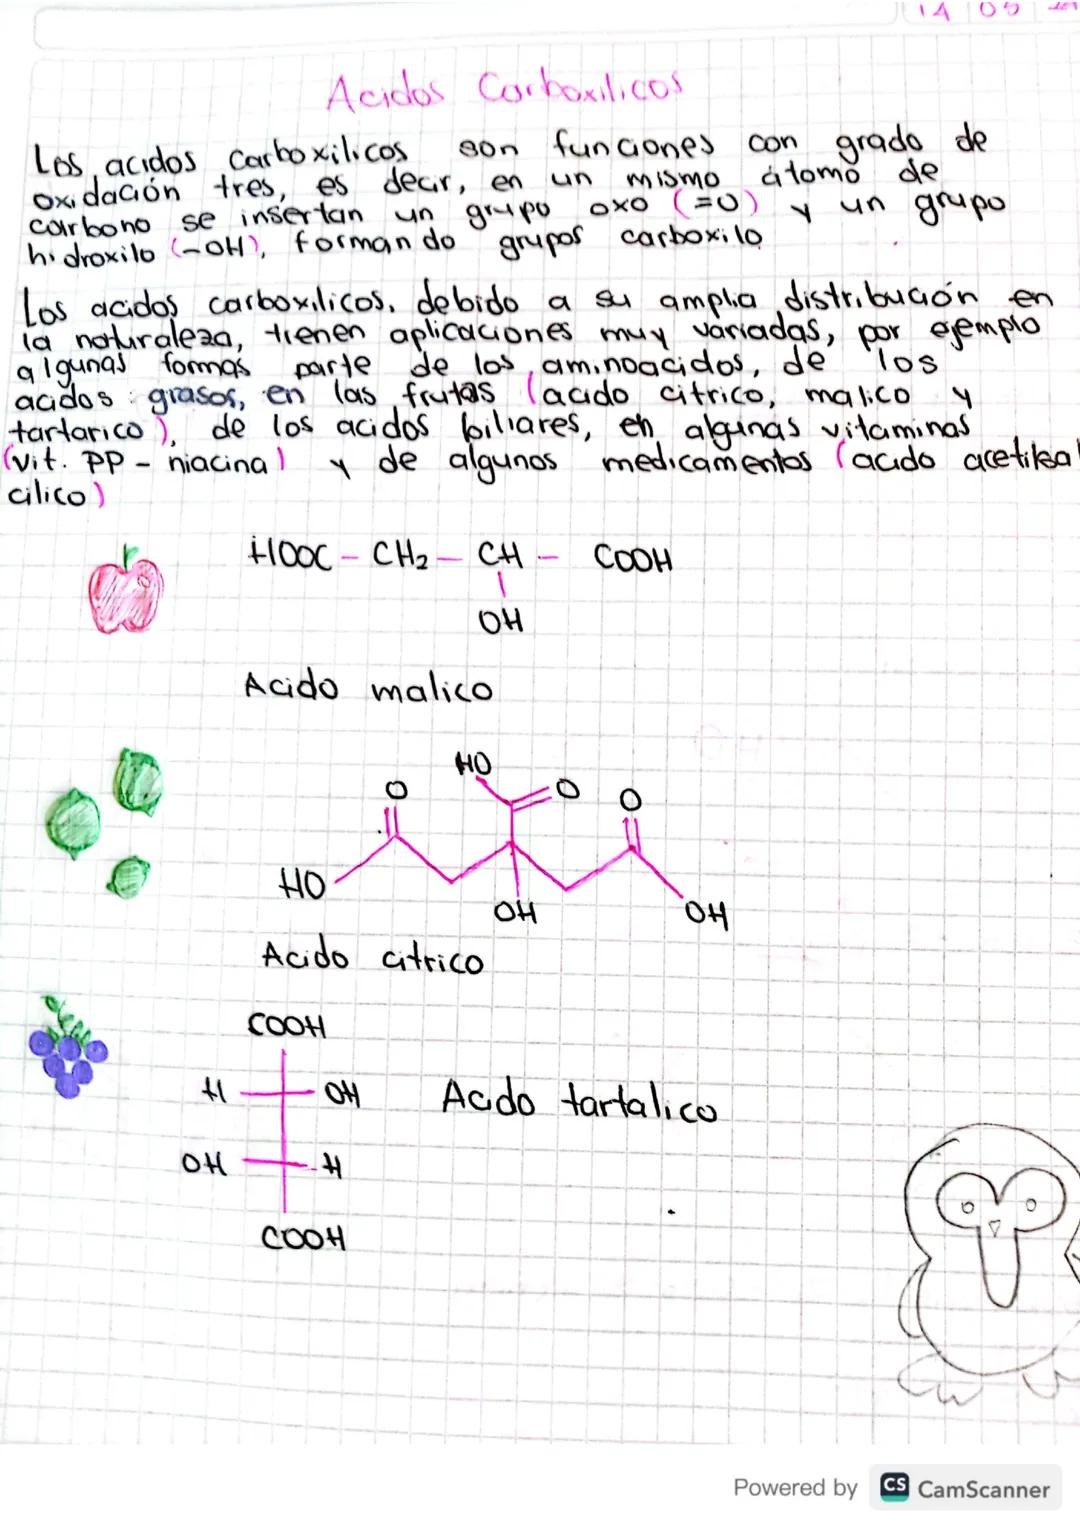 14 05
Acidos Carboxilicos
Los acidos carboxilicos son funciones con grado de
oxidación tres, es decir, en un mismo átomo de
carbono se insertan un grupo oxo (=O) y un grupo
hidroxilo (-OH), formando grupos carboxilo
Los acidos carboxilicos, debido a su amplia distribución en
la naturaleza, tienen aplicaciones muy variadas, por ejemplo
algunas formas parte de los aminoacidos, de los
acidos grasos, en las frutas (acido citrico, malico y
tartarico), de los acidos biliares, en algunas vitaminas
(vit. PP - niacina) y de algunos medicamentos (acido acetilsal
cilico)
HOOC - CH₂ - CH - COOH
OH
Acido malico
HO
O O O
HO OH OH
Acido citrico
COOH
H OH Acido tartalico
OH H
COOH
Powered by CS CamScanner